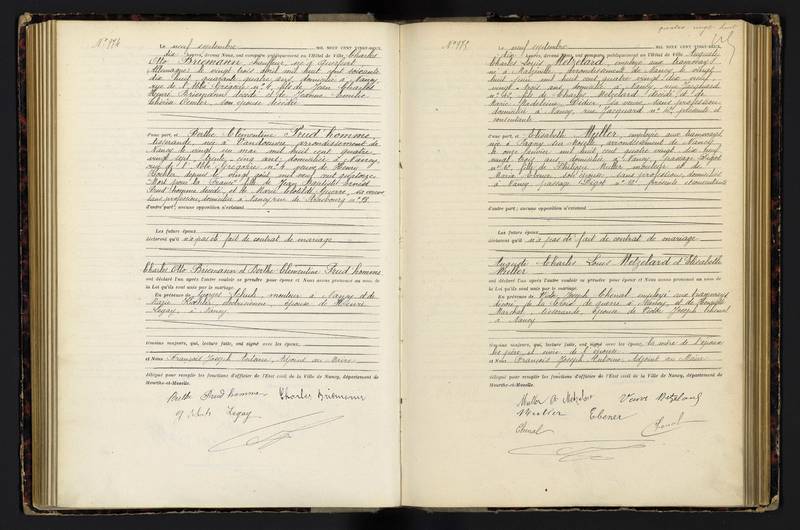 N° 974
Le neuf septembre MIL NEUF CENT VINGT-DEUX,
dix heures, devant Nous, ont comparu publiquement en l'Hôtel de Ville Charles
Otto Briemann, chauffeur, né à
Allemagne, le vingt trois août mil huit cent soixante
dix huit, quarante quatre ans, domicilié à Nancy,
rue de l'Abbé Grégoire n° 4, fils de Jean Charles
Henri Briemann décédé et de
son épouse décédée
d'une part, et Berthe Clémentine Prud'homme,
tisserande, née à Vandoeuvre, arrondissement de
Nancy, le vingt un mai mil huit cent quatre
vingt sept, trente cinq ans, domiciliée à Nancy,
rue de l'Abbé Grégoire n° 4, veuve de Henri
depuis le vingt août mil neuf cent quatorze
Mort pour la France, fille de Jean Baptiste
Prud'homme décédé, et de Marie Clotilde Guerre, sa veuve
sans profession, domiciliée à Nancy, rue de Strasbourg n°
d'autre part; aucune opposition n'existant
Les futurs époux
déclarent qu'il n'a pas été fait de contrat de mariage
Charles Otto Briemann et Berthe Clémentine Prud'homme
ont déclaré l'un après l'autre vouloir se prendre pour époux et Nous avons prononcé au nom de
la Loi qu'ils sont unis par le mariage.
En présence de Georges Schutz, monteur à Nancy et de
Marie épouse de Henri
Legay, à Nancy
témoins majeurs, qui, lecture faite, ont signé avec les époux,
et Nous François Joseph Antoine, Adjoint au Maire
délégué pour remplir les fonctions d'officier de l'Etat civil de la Ville de Nancy, département de
Meurthe-et-Moselle.
Berthe Prud'homme Charles Briemann
G Schutz Legay
quatre vingt huit
N° 975
Le neuf septembre MIL NEUF CENT VINGT-DEUX,
dix heures, devant Nous, ont comparu publiquement en l'Hôtel de Ville Auguste
Charles Louis Metzelard, employé aux tramways
né à Maxéville, arrondissement de Nancy, le vingt
huit juin mil huit cent quatre vingt dix neuf,
vingt trois ans, domicilié à Nancy, rue Jacquard
n° fils de Charles Metzelard décédé, et de
Marie Madeleine Didier, sa veuve, sans profession,
domiciliée à Nancy, rue Jacquard n° présente et
consentante
d'une part, et Elisabeth Muller, employée aux tramways
née à Pagny sur Moselle, arrondissement de Nancy
le onze janvier mil huit cent quatre vingt dix neuf
vingt trois ans, domiciliée à Nancy, passage Digot
n° fille de Philippe Muller, et de
Maria Ebener, son épouse, sans profession, domiciliés
à Nancy, passage Digot n° présents et consentants
d'autre part; aucune opposition n'existant
Les futurs époux
déclarent qu'il n'a pas été fait de contrat de mariage
Auguste Charles Louis Metzelard et Elisabeth
Muller
ont déclaré l'un après l'autre vouloir se prendre pour époux et Nous avons prononcé au nom de
la Loi qu'ils sont unis par le mariage.
En présence de Victor Joseph Chenal, employé aux tramways
décoré de la Croix de guerre à Nancy, et de
Marchal, tisserande, épouse de Victor Joseph Chenal
à Nancy
témoins majeurs, qui, lecture faite, ont signé avec les époux, la mère de l'époux
les père et mère de l'épouse
et Nous François Joseph Antoine, Adjoint au Maire
délégué pour remplir les fonctions d'officier de l'Etat civil de la Ville de Nancy, département de
Meurthe-et-Moselle.
Muller Metzelard Veuve Metzelard
Muller Ebener
Chenal Chenal